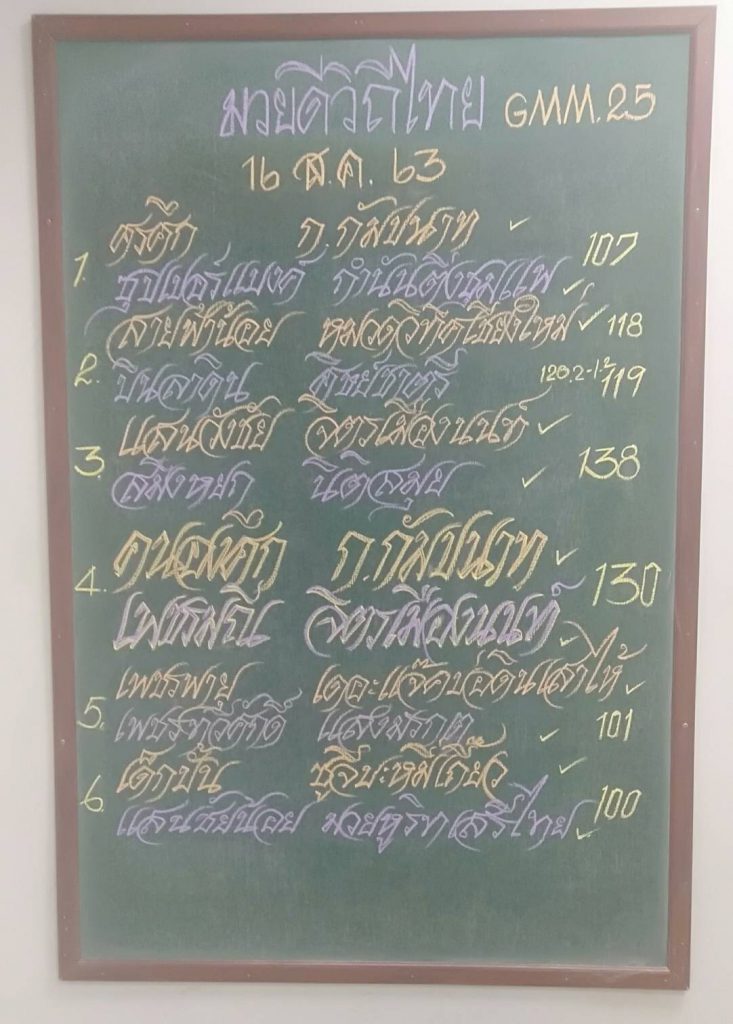 มวยดีวิถีไทย GMM.25
16 ส.ค. 63
1. ศรศึก ก.กัมปนาท 107
ซุปเปอร์แบงค์ กำนันติ่งชุมแพ
สายฟ้าน้อย หมวดวิทิตเชียงใหม่ 118
2. บินลาดิน ศิษย์ชาตรี 120.2-1.2 119
แสนวังชัย จิตรเมืองนนท์
3. สมิงหยก นิติสมุย 138
คนอหึก ก.กัมปนาท
4. 130
เพชรมณี จิตรเมืองนนท์
เพชรพายุ เตอะแจ๊คบ่อดินเสาไห้
5. เพชรทวีศักดิ์ แสงมรกต 101
เด็กปั้น ซูจีบะหมี่เกี๊ยว
6. 100
แสนชัยน้อย มวยหูริทเสรีไทย